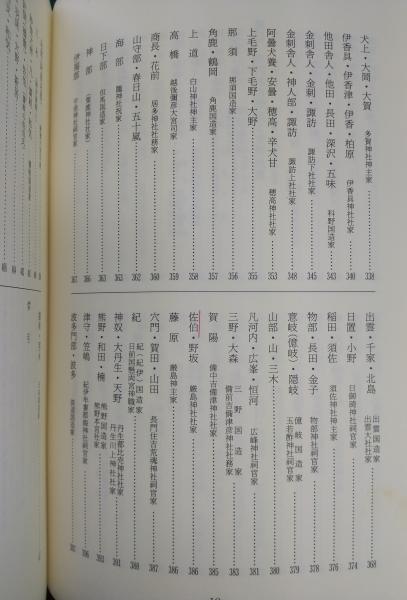 犬上・大岡・大賀 多賀神社神主家 338
伊香具・伊香津・伊香・柏原 伊香具神社社家 340
他田舎人・他田・長田・深沢・五味 科野国造家 343
金刺舎人・金刺・諏訪 諏訪下社社家 345
金刺舎人・神人部・諏訪 諏訪上社社家 348
阿曇犬養・安曇・穂高・辛犬甘 穂高神社社家 353
上毛野・下毛野・大野 355
那須 那須国造家 356
角鹿・鶴岡 角鹿国造家 357
上道 白山神社神主家 358
高橋 越後彌彦大宮司家 359
商長・花前 居多神社社務家 360
山守部・春日山・五十嵐 362
海部 籠神社祝家 363
日下部 但馬国造家 363
神部 366
伊福部 367
出雲・千家・北島 出雲国造家 出雲大社社家 368
日置・小野 日御碕神社祠官家 374
稲田・須佐 須佐神社神主家 376
物部・長田・金子 物部神社祠官家 378
意岐(億岐)・隠岐 億岐国造家 玉若酢神社祠官家 379
山部・山・三木 380
凡河内・広峯・恒河 広峰神社祠官家 381
三野・大森 三野国造家 備前吉備津彦神社社務家 383
賀陽 備中吉備津神社社家 385
佐伯・野坂 厳島神社社家 386
藤原 厳島神主家 386
穴門・賀田・山田 長門住吉荒魂神社祠官家 387
紀 紀(紀伊)国造家 日前国懸両宮神職家 388
神奴・大丹生・天野 丹生都比売神社社家 丹生川上神社社家 391
熊野・和田・楠 熊野国造家 熊野本宮社家 393
津守・笠嶋 396
波多門部・波多 397